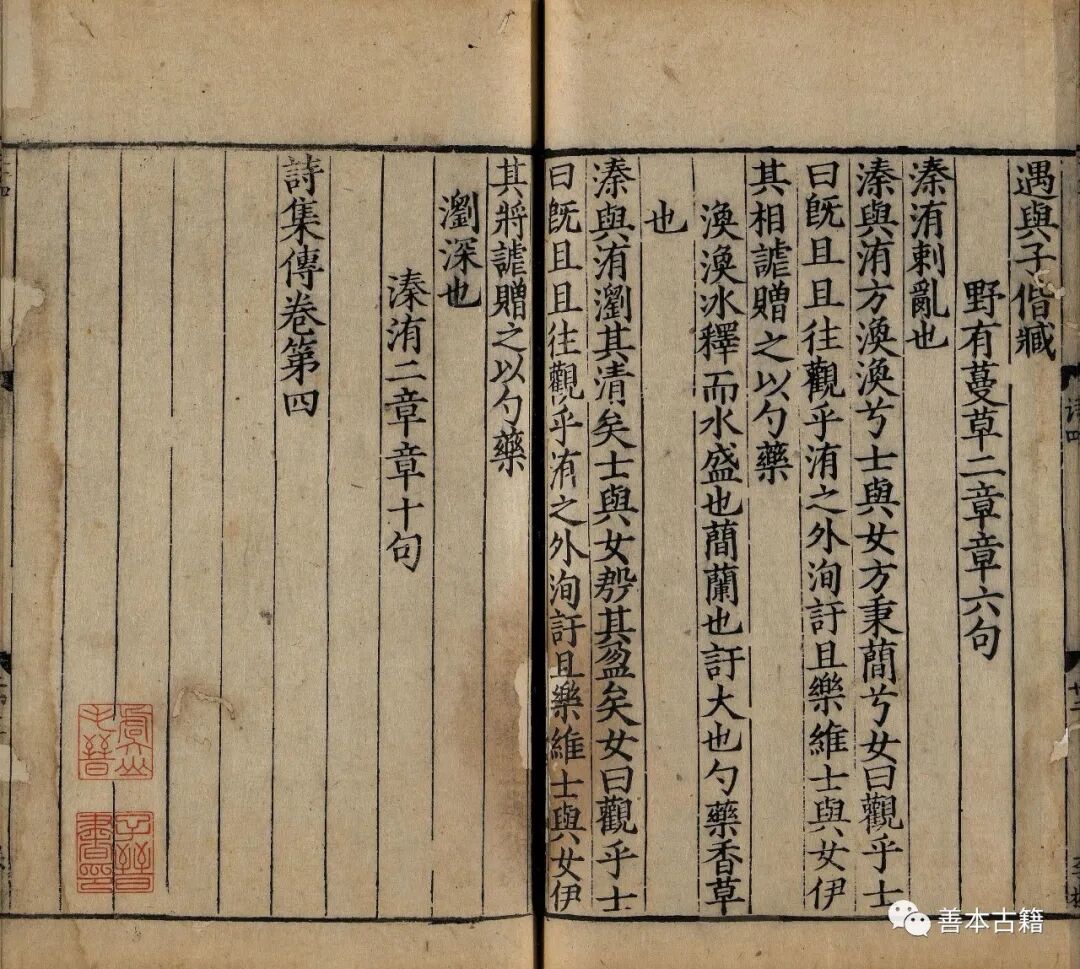 遇與子偕臧
野有蔓草二章章六句
溱洧刺亂也
溱與洧方渙渙兮士與女方秉蕑兮女曰觀乎士
曰旣且且往觀乎洧之外洵訏且樂維士與女伊
其相謔贈之以勺藥
渙渙冰釋而水盛也蕑蘭也訏大也勺藥香草
也
溱與洧瀏其清矣士與女殷其盈矣女曰觀乎士
曰旣且且往觀乎洧之外洵訏且樂維士與女伊
其將謔贈之以勺藥
瀏深也
溱洧二章章十句
詩集傳卷第四
詩四
廿二
虞山毛晉
子晉書印
善本古籍